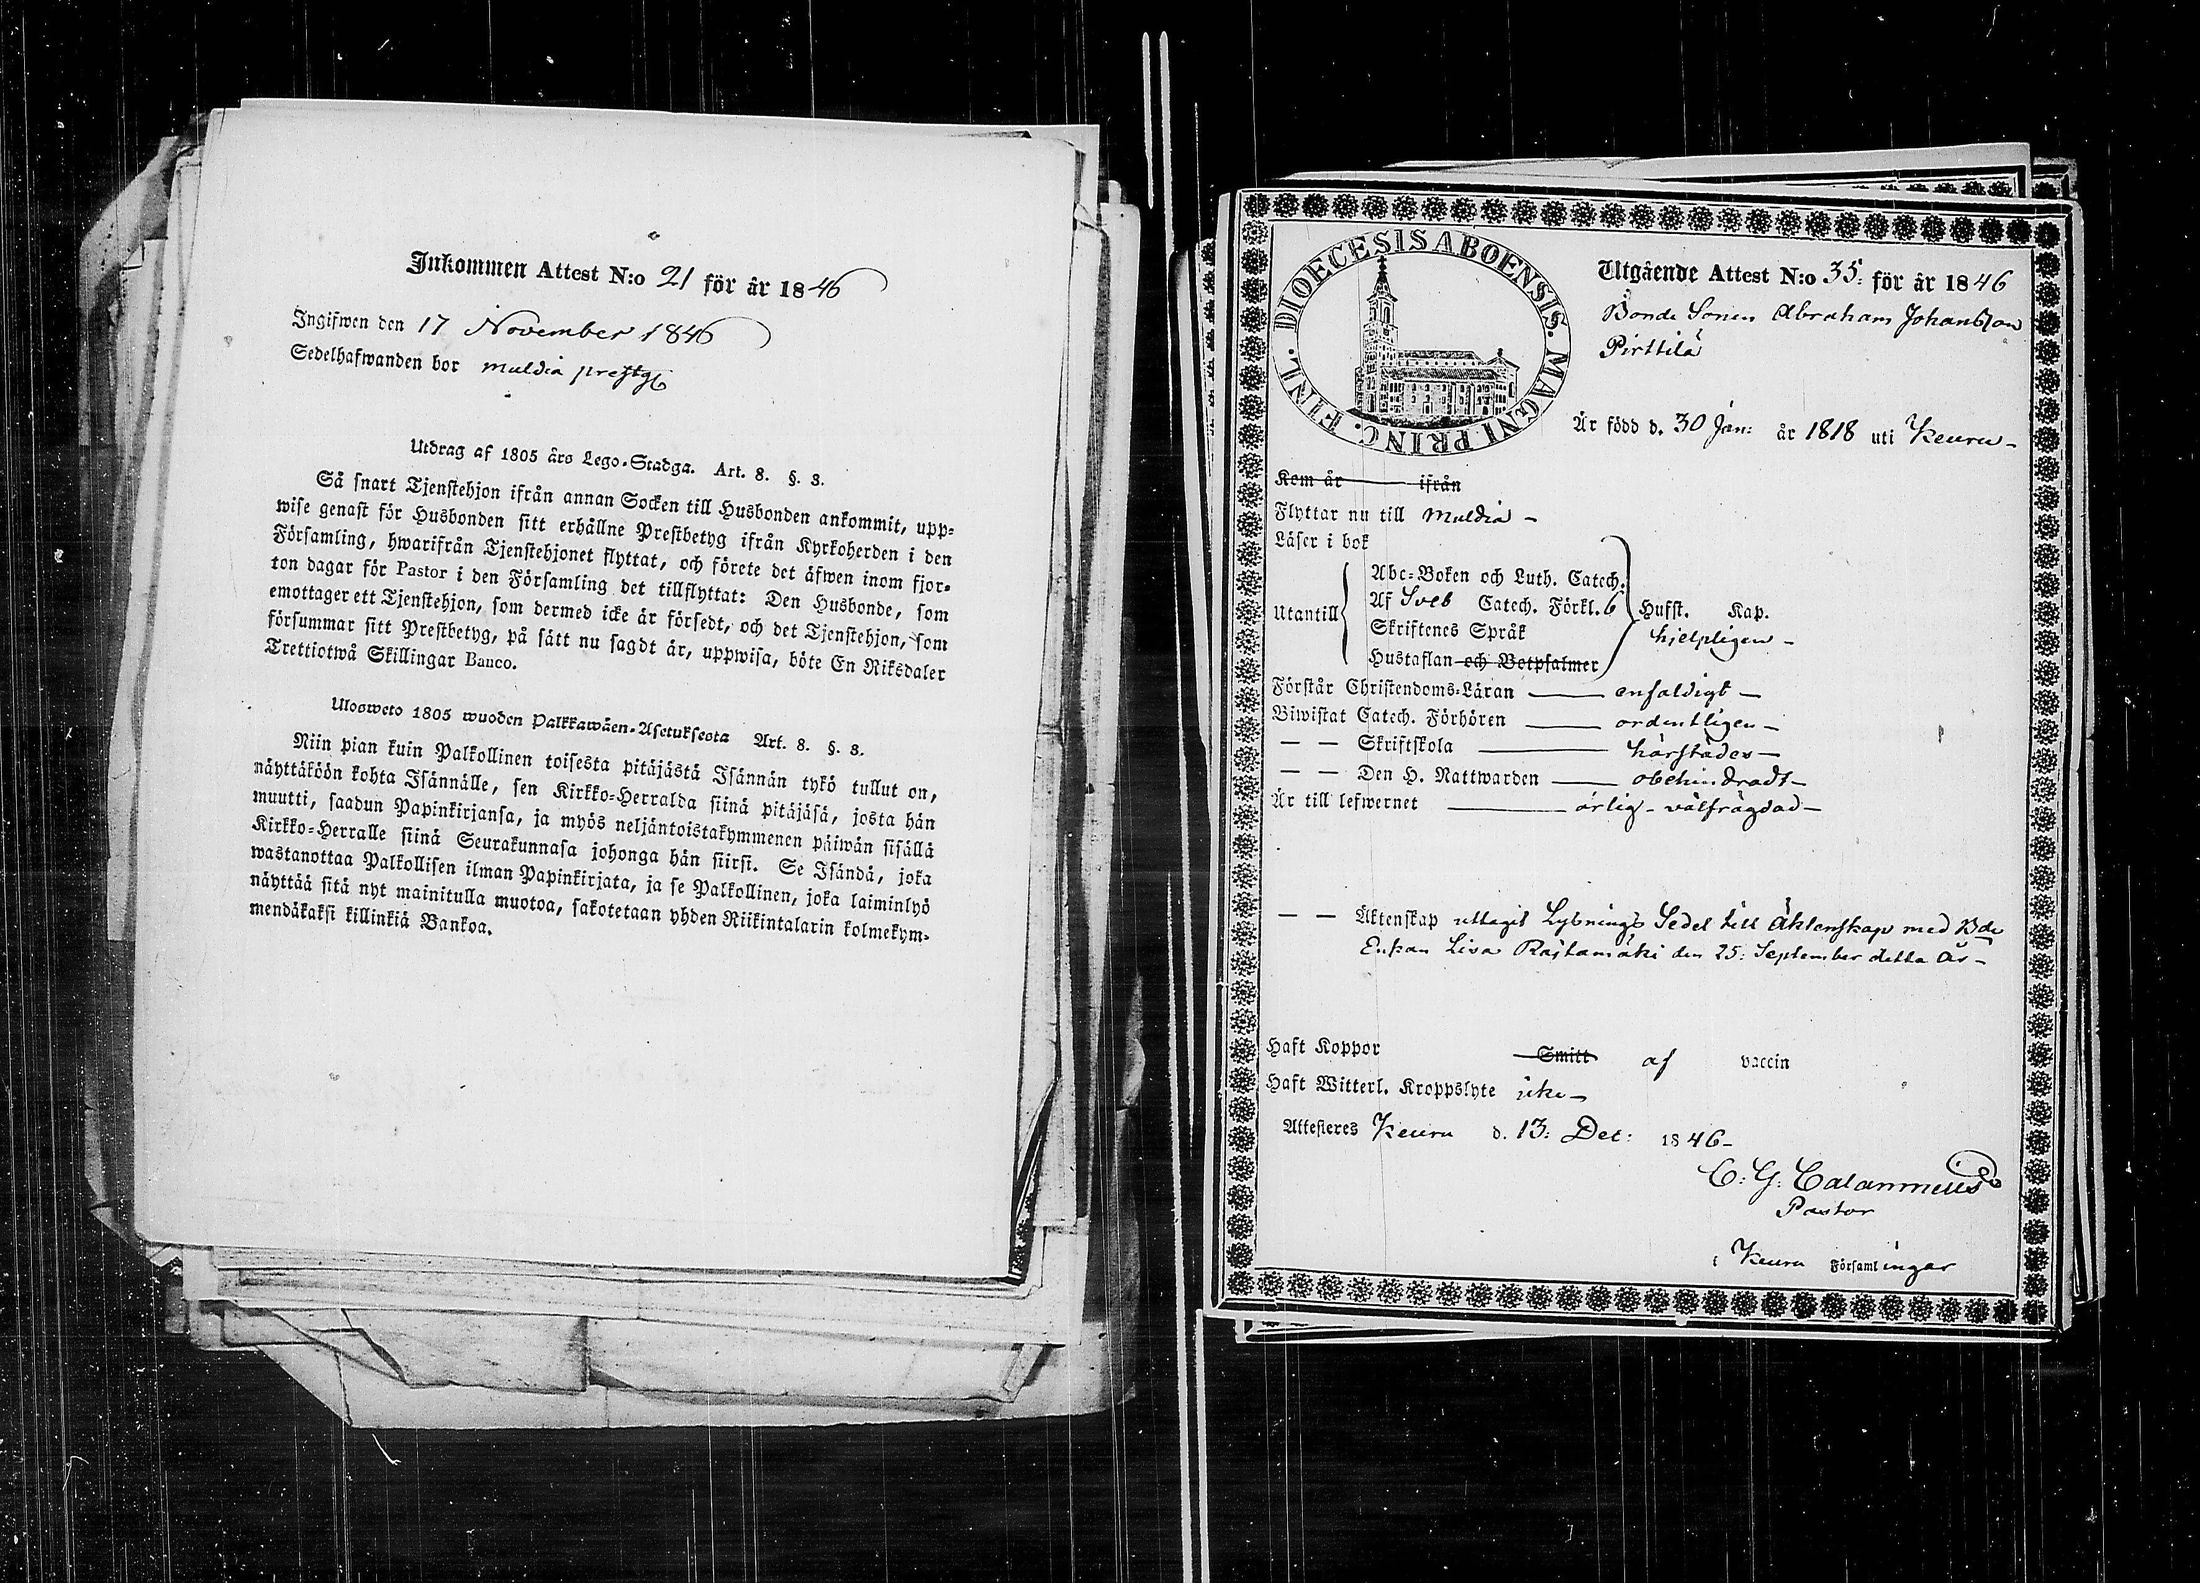 Inkommen Attest N:o 21 för år 1846
Ingifwen den 17 November 1846
Sedelhafwanden bor muldia prestg
Utdrag af 1805 års Lego-Stadga. Art. 8. §. 3.
Så snart Tjenstehjon ifrån annan Socken till Husbonden ankommit, upp-
wise genast för Husbonden sitt erhållne Prestbetyg ifrån Kyrkoherden i den
Församling, hwarifrån Tjenstehjonet flyttat, och förete det äfwen inom fjor-
ton dagar för Pastor i den Församling det tillflyttat: Den Husbonde, som
emottager ett Tjenstehjon, som dermed icke är försedt, och det Tjenstehjon, som
försummar sitt Prestbetyg, på sätt nu sagdt är, uppwisa, böte En Riksdaler
Trettiotwå Skillingar Banco.
Ulosweto 1805 wuoden Palkkawäen-Asetuksesta Art. 8. §. 3.
Niin pian kuin Palkollinen toisesta pitäjästä Isännän tykö tullut on,
näyttäköön kohta Isännälle, sen Kirkko-Herralda siinä pitäjäsä, josta hän
muutti, saadun Papinkirjansa, ja myös neljäntoistakymmenen päiwän sisällä
Kirkko-Herralle siinä Seurakunnasa johonga hän siirsi. Se Isändä, joka
wastanottaa Palkollisen ilman Papinkirjata, ja se Palkollinen, joka laiminlyö
näyttää sitä nyt mainitulla muotoa, sakotetaan yhden Riikintalarin kolmekym-
mendäkaksi killinkiä Bankoa.
DIOECESIS ABOENSIS. MAGNI PRINC. FINL.
Utgående Attest N:o 35: för år 1846
Bonde Sonen Abraham Johansson
Pirttilä
Är född d. 30 Jan: år 1818 uti Keuru-
Kom år ifrån
Flyttar nu till Muldia-
Läser i bok
Utantill
Abc-Boken och Luth. Catech.
Af Sveb Catech. Förkl. 6 Hufst. Kap.
Skriftenes Språk hjelpligen-
Hustaflan och Botpsalmer
Förstår Christendoms-Läran enfaldigt-
Biwistat Catech. Förhören ordentligen-
— — Skriftskola härstädes-
— — Den H. Nattwarden obehindradt-
Är till lefwernet ärlig-välfrägdad-
— — Äktenskap uttagit Lysnings Sedel till Äktenskap med Bde
Enkan Lisa Rajtamäki den 25: September detta År-
Haft Koppor Smitt af vaccin
Haft Witterl. Kroppslyte icke-
Attesteras Keuru d. 13: Oct: 1846-
C: G: Calamnius
Pastor
i Keuru Församlingar